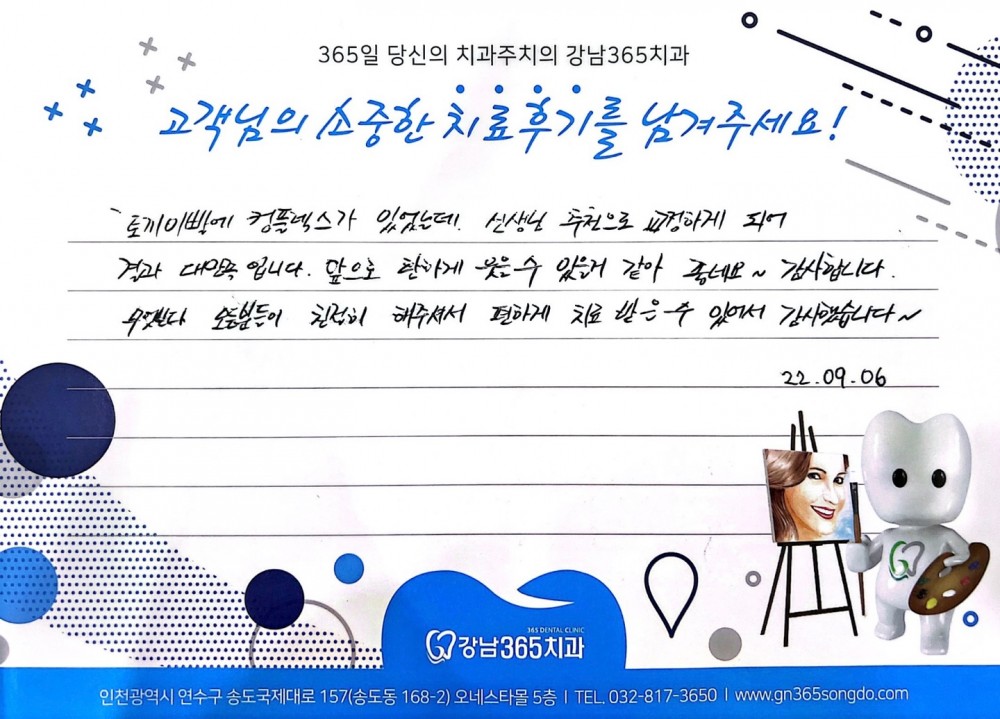 365일 당신의 치과주치의 강남365치과
고객님의 소중한 치료후기를 남겨주세요!
토끼이빨에 컴플렉스가 있었는데. 선생님 추천으로 교정하게 되어
결과 대만족 입니다. 앞으로 편하게 웃을수 있을거 같아 좋네요~ 감사합니다.
무엇보다 모든분들이 친절히 해주셔서 편하게 치료 받을 수 있어서 감사했습니다~
22.09.06
365 DENTAL CLINIC
강남365치과
인천광역시 연수구 송도국제대로 157(송도동 168-2) 오네스타몰 5층 | TEL. 032-817-3650 | www.gn365songdo.com